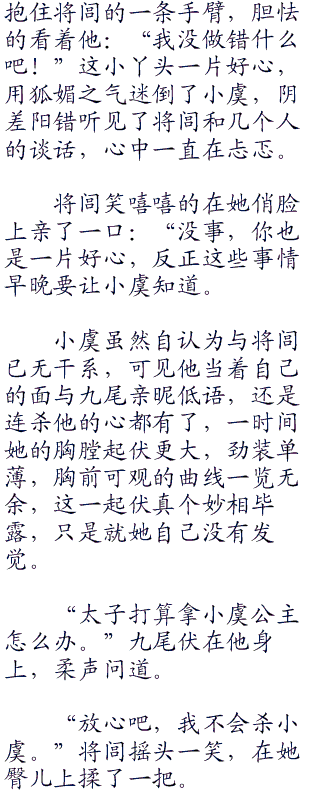 抱住将闾的一条手臂，胆怯
的看着他：“我没做错什么
吧！”这小丫头一片好心，
用狐媚之气迷倒了小虞，阴
差阳错听见了将闾和几个人
的谈话，心中一直在忐忑。
将闾笑嘻嘻的在她俏脸
上亲了一口：“没事，你也
是一片好心，反正这些事情
早晚要让小虞知道。
小虞虽然自认为与将闾
已无干系，可见他当着自己
的面与九尾亲昵低语，还是
连杀他的心都有了，一时间
她的胸膛起伏更大，劲装单
薄，胸前可观的曲线一览无
余，这一起伏真个妙相毕
露，只是就她自己没有发
觉。
“太子打算拿小虞公主
怎么办。”九尾伏在他身
上，柔声问道。
“放心吧，我不会杀小
虞。”将闾摇头一笑，在她
臀儿上揉了一把。